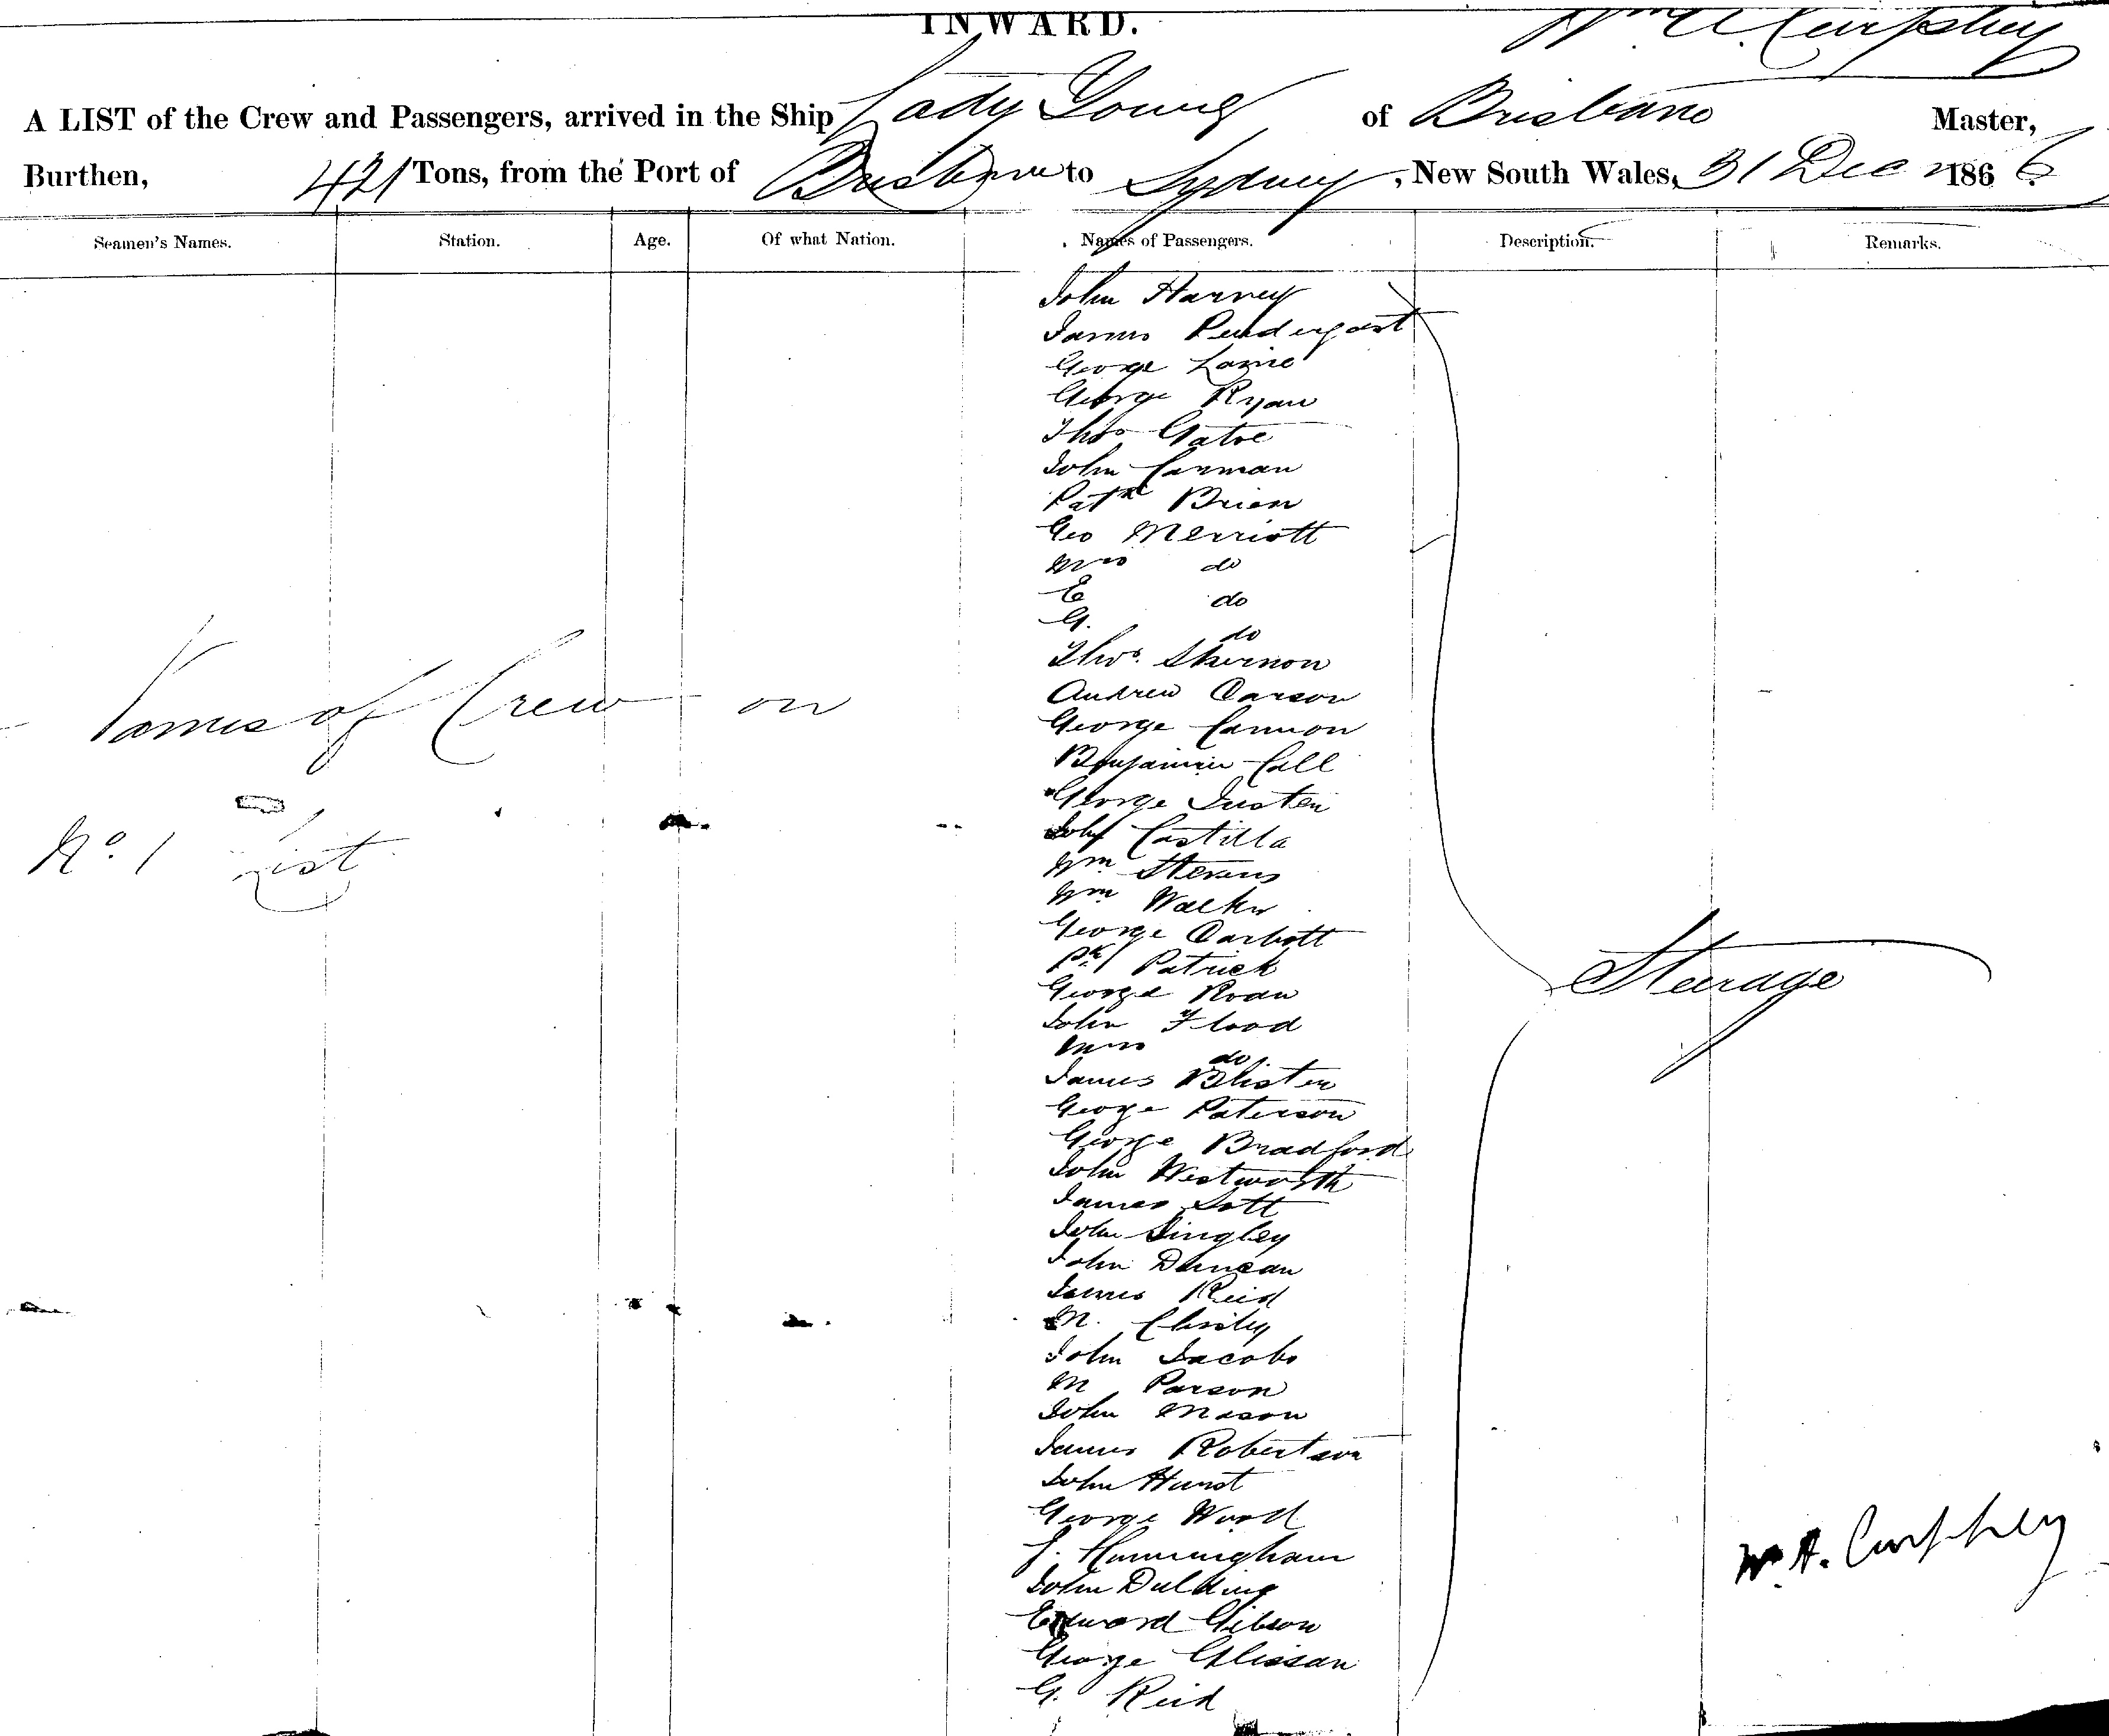 INWARD.
Wm A. Curphey
A LIST of the Crew and Passengers, arrived in the Ship Lady Young of Brisbane Master,
Burthen, 421 Tons, from the Port of Brisbane to Sydney, New South Wales, 31 Decr 1866
Seamen's Names. Station. Age. Of what Nation. Names of Passengers. Description. Remarks.
John Harvey
James Pendergast
George
George Ryan
Thos
John Canman
Patk Brien
Geo Merriott
Mrs do
E do
G. do
Thos.
Andrew Carson
George Cannon
Benjamin Call
George Justen
John Castilla
Wm Stevens
Wm Walker
George Carbott
Pk Patrick
George Roan
John Flood
Mrs do.
James
George Paterson
George Bradford
John Westworth
James Lott
John Singley
John Duncan
James Reid
M.
John Jacobs
M Parson
John Mason
James Robertson
John Hurst
George Wood
J. Hunningham
John
Edward Gibson
George Glissan
G. Reid
Names of Crew on
No. 1 List
Steerage
Wm A. Curphey